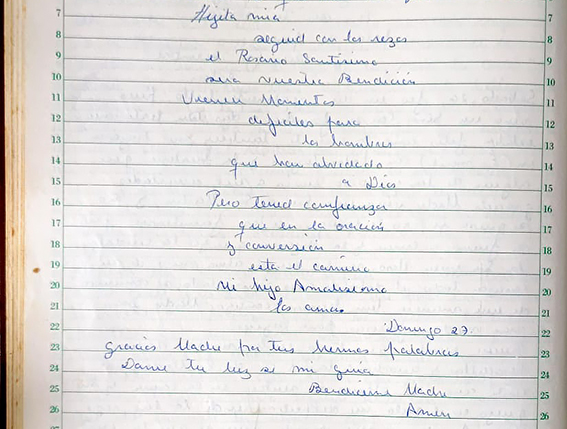 7 Hijita mía 7
8 seguid con los rezos 8
9 el Rosario Santísimo 9
10 sera vuestra Bendición 10
11 Vienen Momentos 11
12 dificiles para 12
13 los hombres 13
14 que han olvidado 14
15 a Dios 15
16 Pero tened confianza 16
17 que en la oración 17
18 y conversión 18
19 esta el camino 19
20 Mi hijo Amadisimo 20
21 los ama 21
22 Domingo 27 22
23 gracias Madre por tus hermos palabras 23
24 Dame tu luz se mi guia 24
25 Bendiceme Madre 25
26 Amen 26